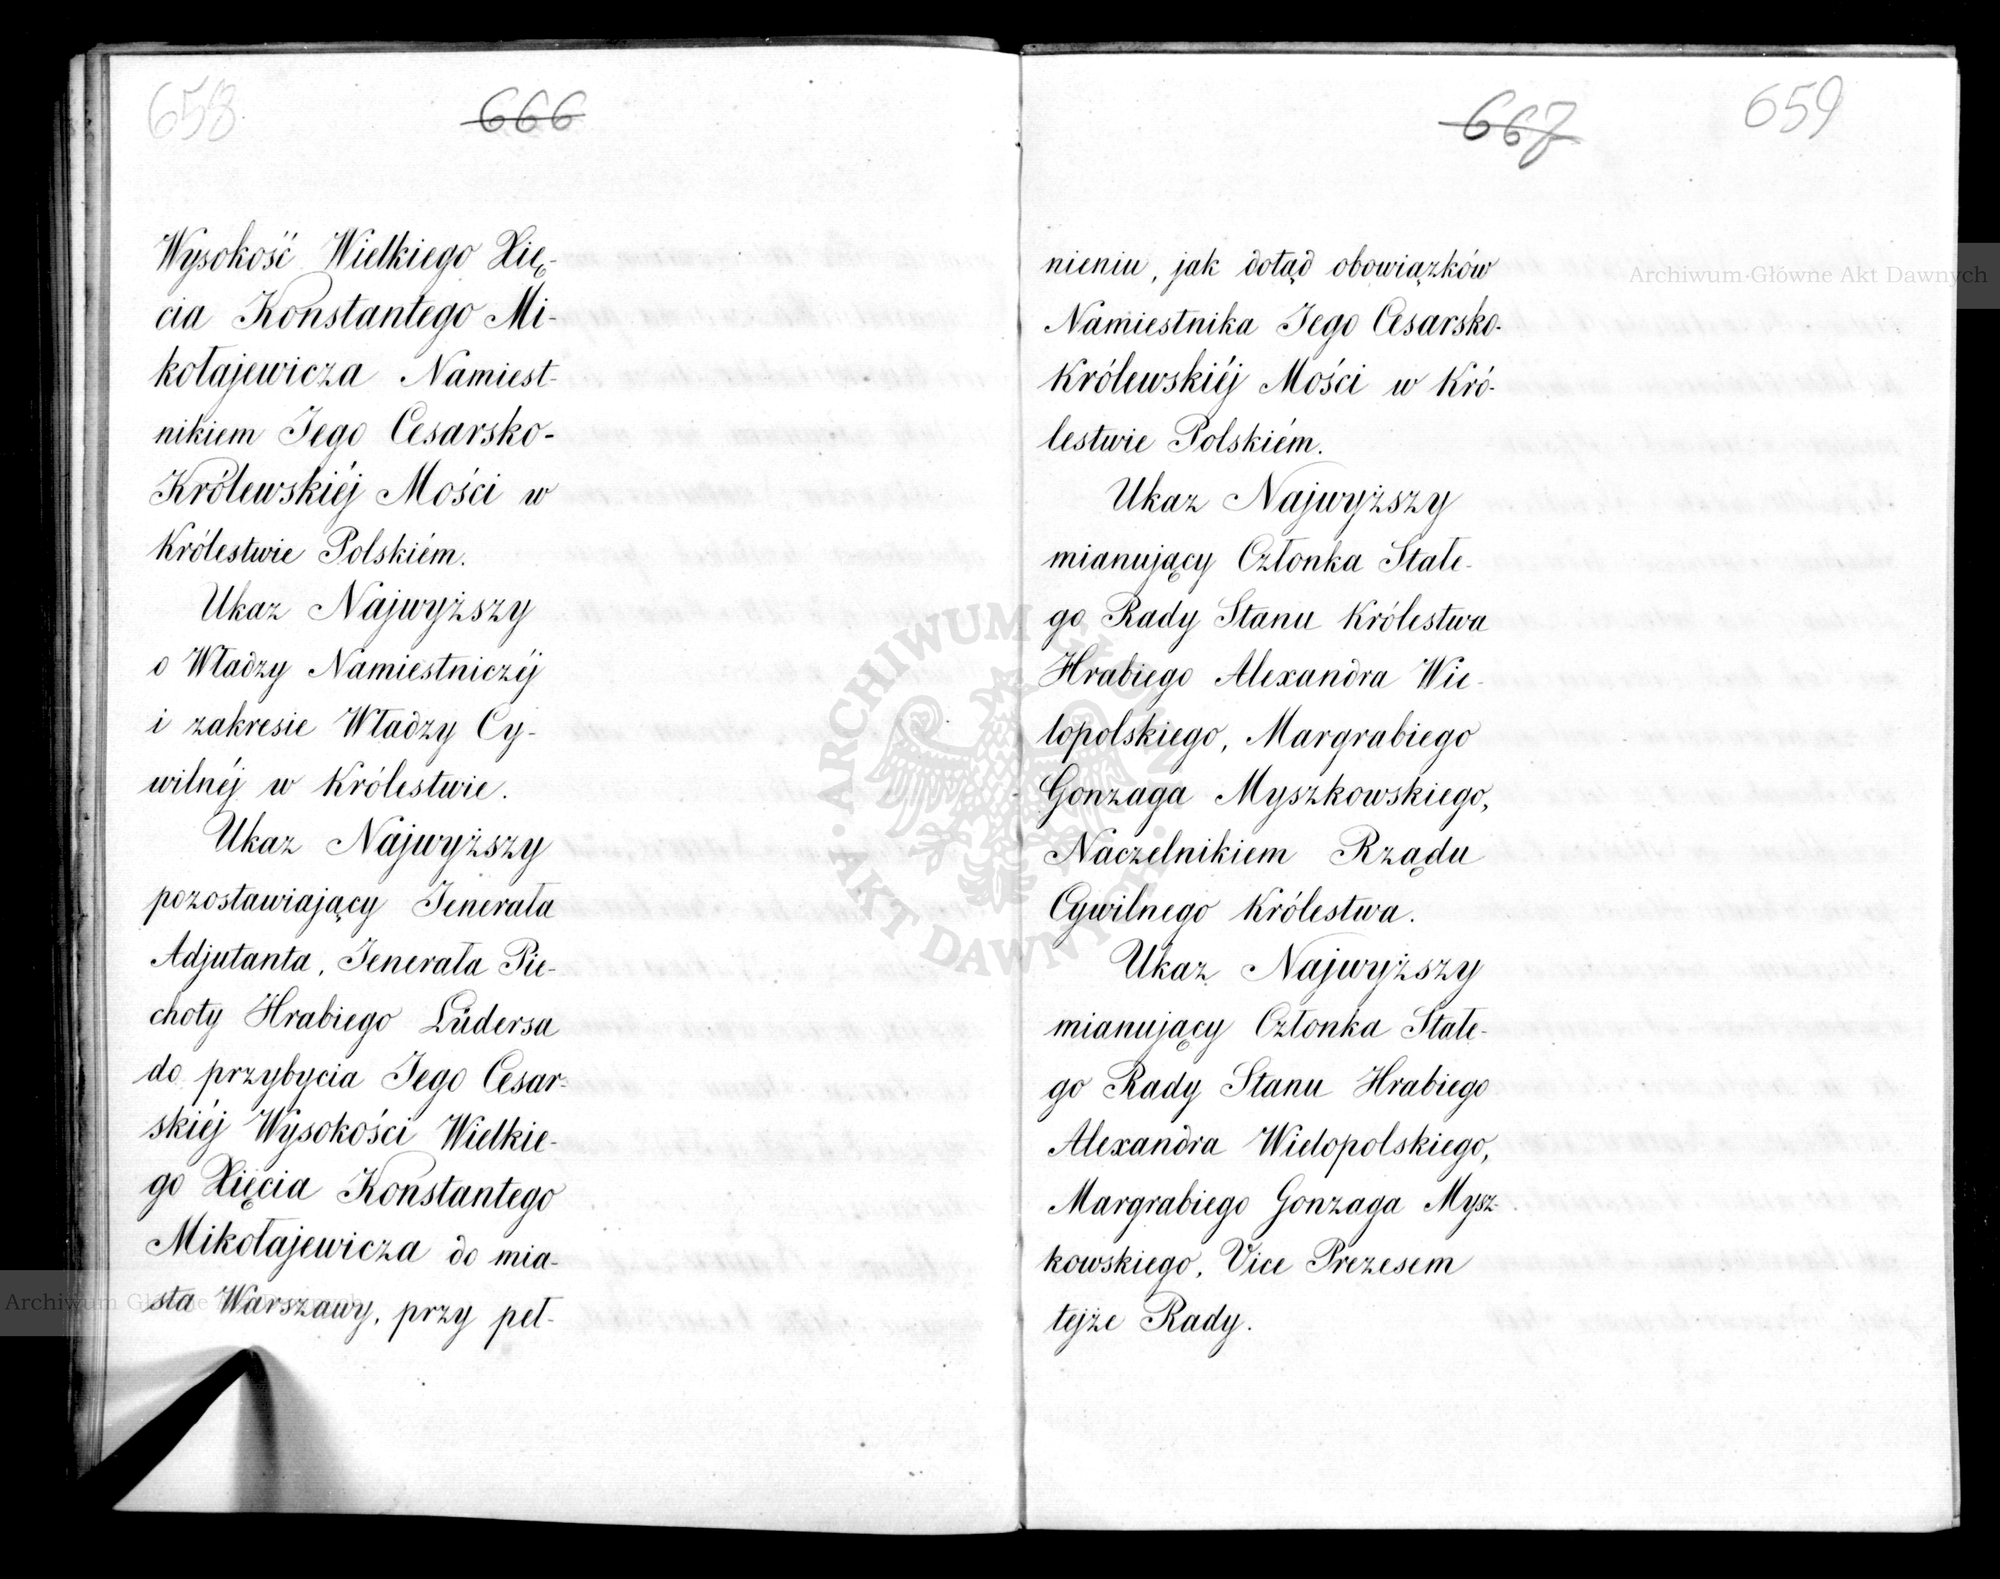 658
666
Wysokość Wielkiego Xię-
cia Konstantego Mi-
kołajewicza Namiest-
nikiem Jego Cesarsko-
Królewskiéj Mości w
Królestwie Polskiém.
Ukaz Najwyższy
o Władzy Namiestniczéj
i zakresie Władzy Cy-
wilnéj w Królestwie.
Ukaz Najwyższy
pozostawiający Jenerała
Adjutanta, Jenerała Pie-
choty Hrabiego Lüdersa
do przybycia Jego Cesar-
skiéj Wysokości Wielkie-
go Xięcia Konstantego
Mikołajewicza do mia-
sta Warszawy, przy peł-
667
659
nieniu, jak dotąd obowiązków
Namiestnika Jego Cesarsko-
Królewskiéj Mości w Kró-
lestwie Polskiém.
Ukaz Najwyższy
mianujący Członka Stałe-
go Rady Stanu Królestwa
Hrabiego Alexandra Wie-
lopolskiego, Margrabiego
Gonzaga Myszkowskiego,
Naczelnikiem Rządu
Cywilnego Królestwa.
Ukaz Najwyższy
mianujący Członka Stałe-
go Rady Stanu Hrabiego
Alexandra Wielopolskiego,
Margrabiego Gonzaga Mysz-
kowskiego, Vice Prezesem
tejże Rady.
Archiwum Główne Akt Dawnych
ARCHIWUM GŁÓWNE AKT DAWNYCH
Archiwum Główne Akt Dawnych